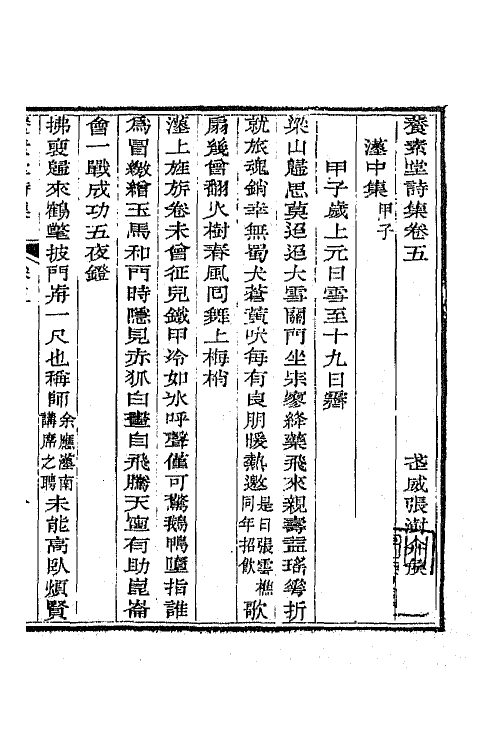 養素堂詩集卷五
武威張澍介侯
漢中集甲子
甲子歲上元日雪至十九日霽
梁山歸思莫迢迢大雪關門坐寂寥絳藥飛來親壽盂瑤簪折
就旅魂銷幸無蜀犬蒼黃吠每有良朋暖熱邀是日張雲樵同年招飲歌
扇幾曾翻火樹春風囘舞上梅梢
漢上旌旂卷未曾征兒鐵甲冷如冰呼聲僅可驚鵝鴨墮指誰
爲冒繳繒玉馬和門時隱見赤狐白晝自飛騰天心有助崑崙
會一戰成功五夜鐙
拂衷歸來鶴氅披門庯一尺也稱師余應漢南講席之聘未能高臥煩賢